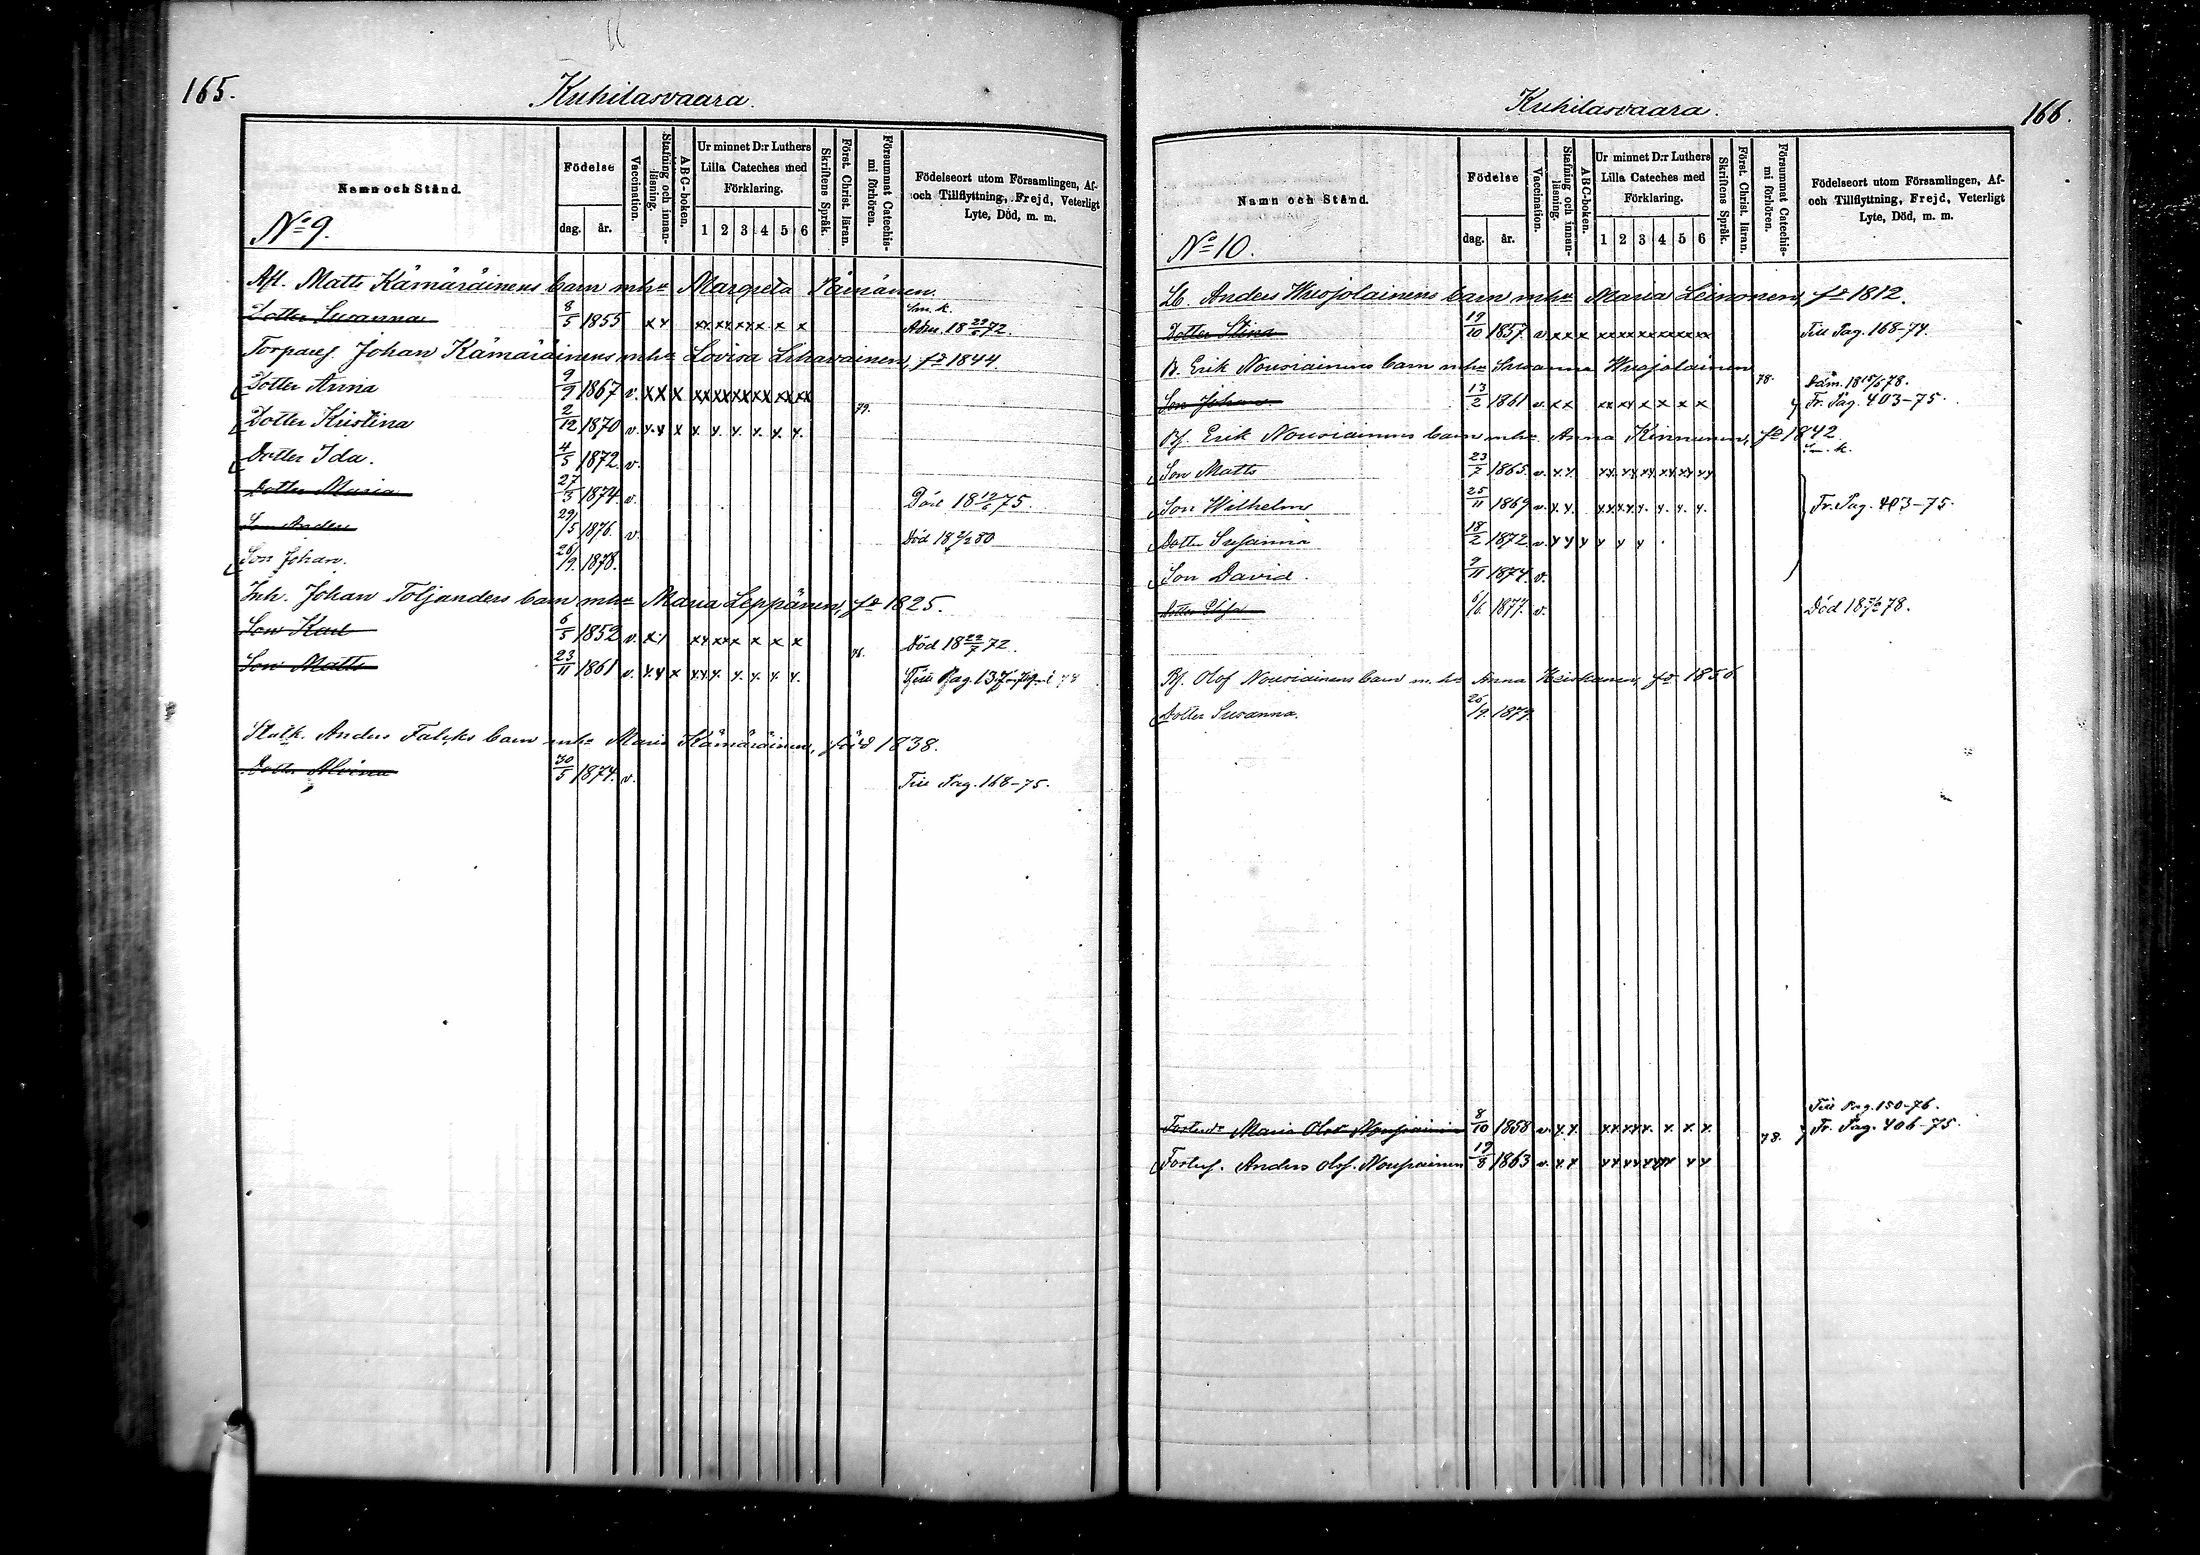 165.
Kuhilasvaara.
Namn och Stånd.
Födelse
dag. år.
Vaccination.
Stafning och innanläsning.
ABC-boken.
Ur minnet D:r Luthers Lilla Cateches med Förklaring.
1 2 3 4 5 6
Skriftens Språk.
Först. Christ. läran.
Försummat Catechismi förhören.
Födelseort utom Församlingen, Af- och Tillflyttning, Frejd, Veterligt Lyte, Död, m. m.
No 9.
Afl. Matts Kämäräinens barn mhu Margreta
Dotter Susanna 8/5 1855 x x xx xx xx x x x
Torpares. Johan Kämäräinens mhu Lovisa fd 1844.
Dotter Anna 9/9 1867 v. x x x xx xx xx xx xx xx
Dotter Kristina 2/12 1870 v. x x x x. x. x. x. x. x. 79.
Dotter Ida. 4/5 1872 v.
Dotter Maria 27/3 1874 v. Död 18 12/6 75.
Son Anders 29/5 1876 v. Död 18 80
Son Johan. 26/9 1878.
Inh. Johan Toljanders barn mhu Maria Leppänen, fd 1825.
Son Karl 6/5 1852 v. x x xx xx x x x Död 18 22/7 72.
Son Matts 23/11 1861 v. x x x xx x. x. x. x. x. Till Pag. 137
Anders Falcks barn mhu Maria Kämäräinen, född 1838.
Dotter Alvina 30/5 1874 v. Till Pag. 168-75.
Kuhilasvaara.
166.
Namn och Stånd.
Födelse
dag. år.
Vaccination.
Stafning och innanläsning.
ABC-boken.
Ur minnet D:r Luthers Lilla Cateches med Förklaring.
1 2 3 4 5 6
Skriftens Språk.
Först. Christ. läran.
Försummat Catechismi förhören.
Födelseort utom Församlingen, Af- och Tillflyttning, Frejd, Veterligt Lyte, Död, m. m.
No 10.
Lb. Anders barn mhu Maria Leinonen, fd 1812.
Dotter Stina 19/10 1857 v. x x x xx xx xx xx xx xx Till Pag. 168-74.
B. Erik Nousiainens barn mhu Susanna
78. Döm. 18 15/6 78.
Son Johan 13/2 1861 v. x x xx xx x x x x Fr. Pag. 403-75.
Bf. Erik Nousiainens barn mhu Anna Kinnunen, fd 1842
Son Matts 23/2 1865 v. x x. xx. xx xx xx xx xx
Son Wilhelm 25/11 1869 v. x. x. xx xx x. x. x. x. Fr. Pag. 403-75.
Dotter Susanna 18/2 1872 v. x x x x x x
Son David. 9/11 1874 v.
Dotter Elisa 6/6 1877. v. Död 18 78.
Bf. Olof Nousiainens barn m. hu Anna Heiskanen, fd 1856
Dotter Susanna. 26/9 1879.
Till Pag. 150-76.
Maria Olofsdr 8/10 1858 v. x x xx xx x x x 78. Fr. Pag. 406-75.
Fosters. Anders Olofs. Nousiainen 19/8 1863 v. x x xx xx xx xx x x